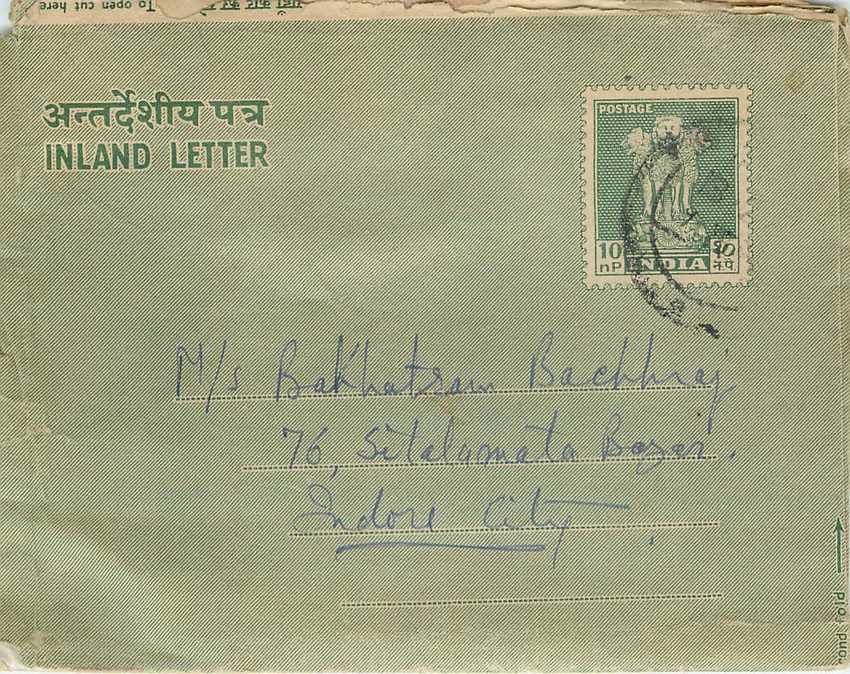 To open cut here
अन्तर्देशीय पत्र
INLAND LETTER
POSTAGE
10 १०
nP न.पै.
INDIA
M/s Bakhatram Bachhraj
76, Sitalamata Bazar.
Indore City
fold